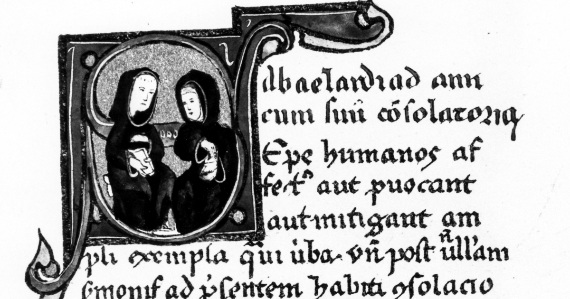 Abaelardi ad ami
cum suū cōsolatoria
Epe humanos af
fectꝰ aut ꝓuocant
aut mitigant am
pliꝰ exempla q̄m ūba. vn̄ post n̄ullam
ẜmonis ad p̄sentem habiti ꝯsolacio